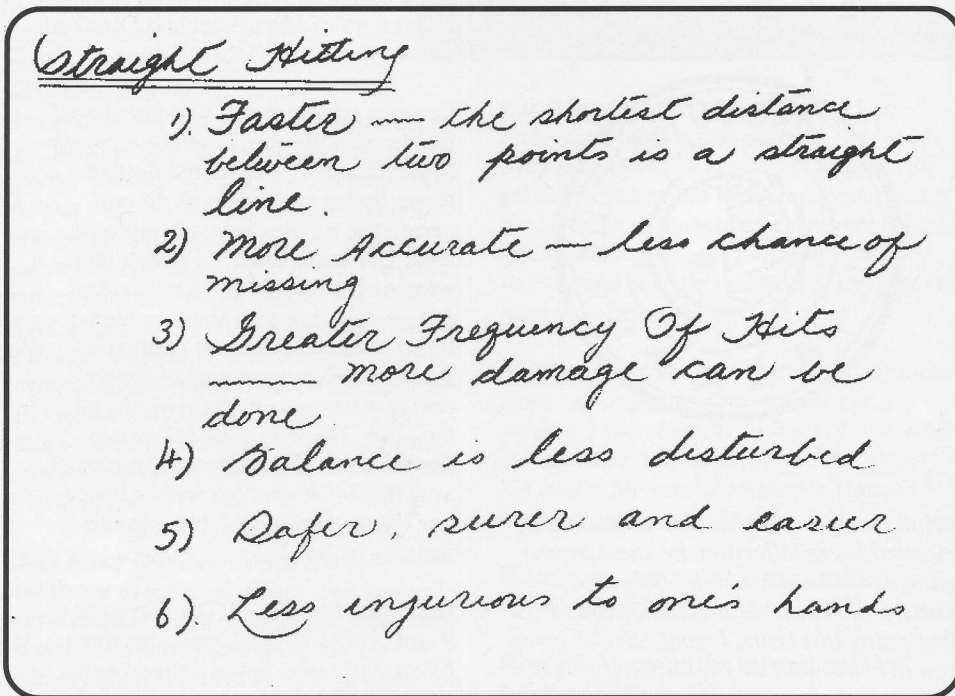 Straight Hitting
1). Faster — the shortest distance
between two points is a straight
line.
2) More Accurate — less chance of
missing
3) Greater Frequency Of Hits
—— more damage can be
done
4) Balance is less disturbed
5) Safer, surer and easier
6). Less injurious to one's hands